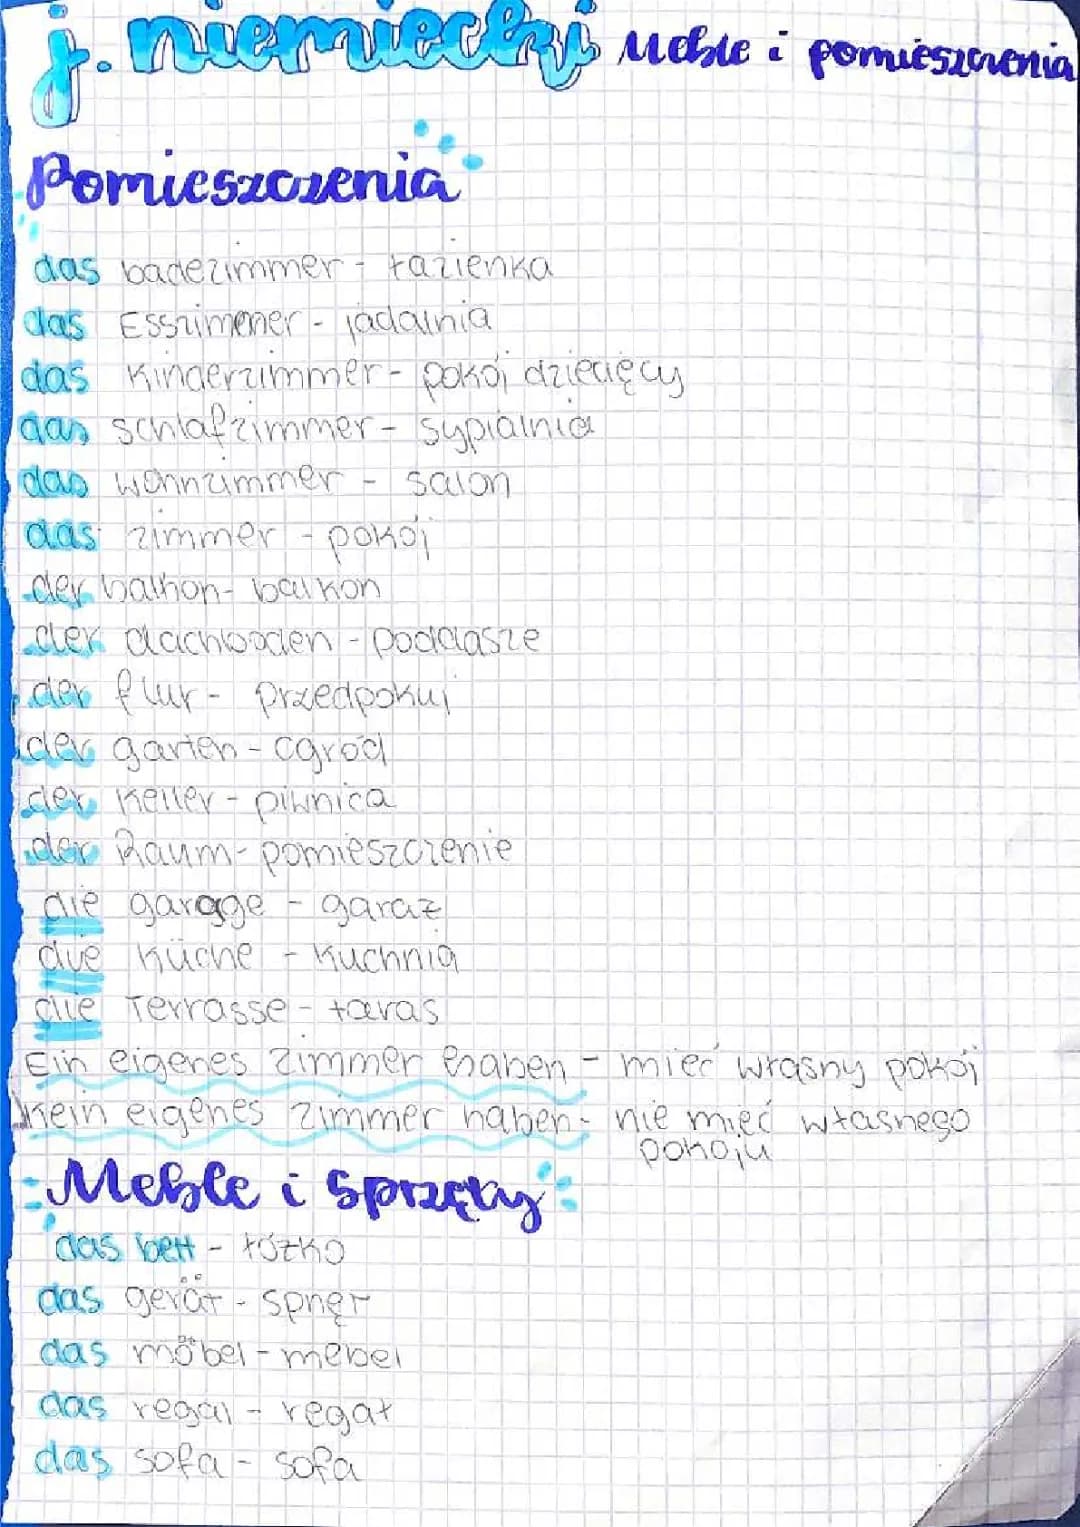 j. niemiecki Meble i pomieszczenia
Pomieszczenia
das badezimmer - łazienka
das Esszimmer - jadalnia
das Kinderzimmer - pokój dziecięcy
das schlafzimmer - sypialnia
das wohnzimmer - salon
das zimmer - pokój
der balkon - balkon
der dachboden - poddasze
der flur - przedpokuj
der garten - ogród
der Keller - piwnica
der Raum - pomieszczenie
die garage - garaż
die küche - kuchnia
die Terrasse - taras
Ein eigenes Zimmer haben - mieć własny pokój
kein eigenes zimmer haben - nie mieć własnego
pokoju
Meble i sprzęty
das bett - łóżko
das gerät - sprzęt
das möbel - mebel
das regal - regał
das sofa - sofa